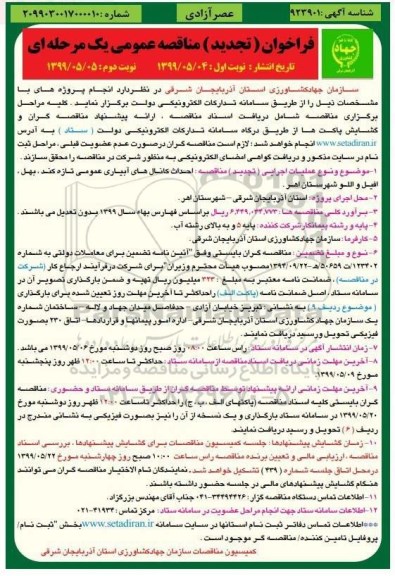 شناسه آگهی: ۹۲۳۹۰۱
عصرآزادی
شماره: ۲۰۹۹۰۳۰۰۱۷۰۰۰۰۱۰
جهاد
فراخوان (تجدید) مناقصه عمومی یک مرحله ای
تاریخ انتشار: نوبت اول: ۱۳۹۹/۰۵/۰۴ نوبت دوم: ۱۳۹۹/۰۵/۰۵
سازمان جهادکشاورزی استان آذربایجان شرقی در نظردارد انجام پروژه های با
مشخصات ذیل را از طریق سامانه تدارکات الکترونیکی دولت برگزار نماید. کلیه مراحل
برگزاری مناقصه شامل دریافت اسناد مناقصه، ارائه پیشنهاد مناقصه گران و
گشایش پاکت ها از طریق درگاه سامانه تدارکات الکترونیکی دولت (ستاد) به آدرس
www.setadiran.ir انجام خواهد شد؛ لازم است مناقصه گران درصورت عدم عضویت قبلی، مراحل ثبت
نام در سایت مذکور و دریافت گواهی امضای الکترونیکی به منظور شرکت در مناقصه را محقق سازند.
۱-موضوع ونوع عملیات اجرایی (تجدید) مناقصه: احداث کانال های آبیاری عمومی تازه کند، بهل،
افیل و اللو شهرستان اهر.
۲-محل اجرای پروژه: استان آذربایجان شرقی - شهرستان اهر.
۳-برآورد کلی مناقصه ها: ۶,۴۴۹,۰۳۳,۷۷۳ ریال براساس فهارس بهاء سال ۱۳۹۹ بدون تعدیل می باشند.
۴-پایه و رشته پیمانکار شرکت کننده: پایه ۵ و به بالای رشته آب.
۵-کارفرما: سازمان جهادکشاورزی استان آذربایجان شرقی.
۶-نوع و مبلغ تضمین: مناقصه گران بایستی وفق "آئین نامه تضمین برای معاملات دولتی به شماره
۱۲۳۴۰۲/ت ۵۰۶۵۹ ه مورخه ۱۳۹۴/۰۹/۲۲ مصوب هیأت محترم وزیران" برای شرکت درفرآیند ارجاع کار (شرکت
در مناقصه)، ضمانت نامه معتبر به مبلغ: ۳۲۳ میلیون ریال تهیه و ضمن بارگذاری تصویر آن در
سامانه ستاد؛ اصل ضمانت نامه (پاکت الف) را حداکثر تا آخرین مهلت روز تعیین شده برای بارگذاری
(موضوع ردیف ۹) به نشانی تبریز خیابان آزادی - حدفاصل میدان جهاد و لاله - ساختمان شماره
یک سازمان جهادکشاورزی استان آذربایجان شرقی - اداره امور پیمانها و قراردادها - اتاق ۲۳۰ بصورت
فیزیکی تحویل ورسید دریافت نمایند.
۷-زمان انتشار آگهی در سامانه ستاد: راس ساعت ۰۸:۰۰ روز صبح روز دوشنبه مورخ ۱۳۹۹/۰۵/۰۶ می باشد.
۸-آخرین مهلت زمانی دریافت اسنادمناقصه ازسامانه ستاد: حداکثر تا ساعت ۱۲:۰۰ ظهر روز پنجشنبه
مورخ ۱۳۹۹/۰۵/۰۹.
۹-آخرین مهلت زمانی ارائه پیشنهاد توسط مناقصه گران از طریق سامانه ستاد و حضوری: مناقصه
گران بایستی کلیه اسناد مناقصه (پاکتهای الف، ب، ج) را حداکثر تاساعت ۱۲:۰۰ ظهر روز دوشنبه مورخ
۱۳۹۹/۰۵/۲۰ در سامانه ستاد بارگذاری و یک نسخه از آن را نیز بصورت فیزیکی به نشانی مندرج در
ردیف (۶) تحویل و رسید دریافت نمایند.
۱۰-زمان گشایش پیشنهادها: جلسه کمیسیون مناقصات برای گشایش پیشنهادها، بررسی اسناد
مناقصه، ارزیابی مالی و تعیین برنده مناقصه راس ساعت ۱۰:۰۰ صبح روز چهارشنبه مورخ ۱۳۹۹/۰۵/۲۲
درمحل اتاق جلسه شماره (۳۳۹) تشکیل خواهد شد. نمایندگان تام الاختیار مناقصه گران می توانند
هنگام گشایش پیشنهادهای مالی در جلسه حضور داشته باشند.
۱۱-اطلاعات تماس دستگاه مناقصه گزار: ۳۴۴۹۴۴۲۶-۰۴۱ جناب آقای مهندس بزرگزاد.
۱۲-اطلاعات سامانه ستاد جهت انجام مراحل عضویت در سامانه ستاد: مرکز تماس: ۴۱۹۳۴-۰۲۱
***اطلاعات تماس دفاتر ثبت نام استانها در سایت سامانه www.setadiran.ir بخش "ثبت نام/
پروفایل تامین کننده/ مناقصه گر موجود است.
کمیسیون مناقصات سازمان جهادکشاورزی استان آذربایجان شرقی
پایگاه اطلاع رسانی مناقصه ومزایده